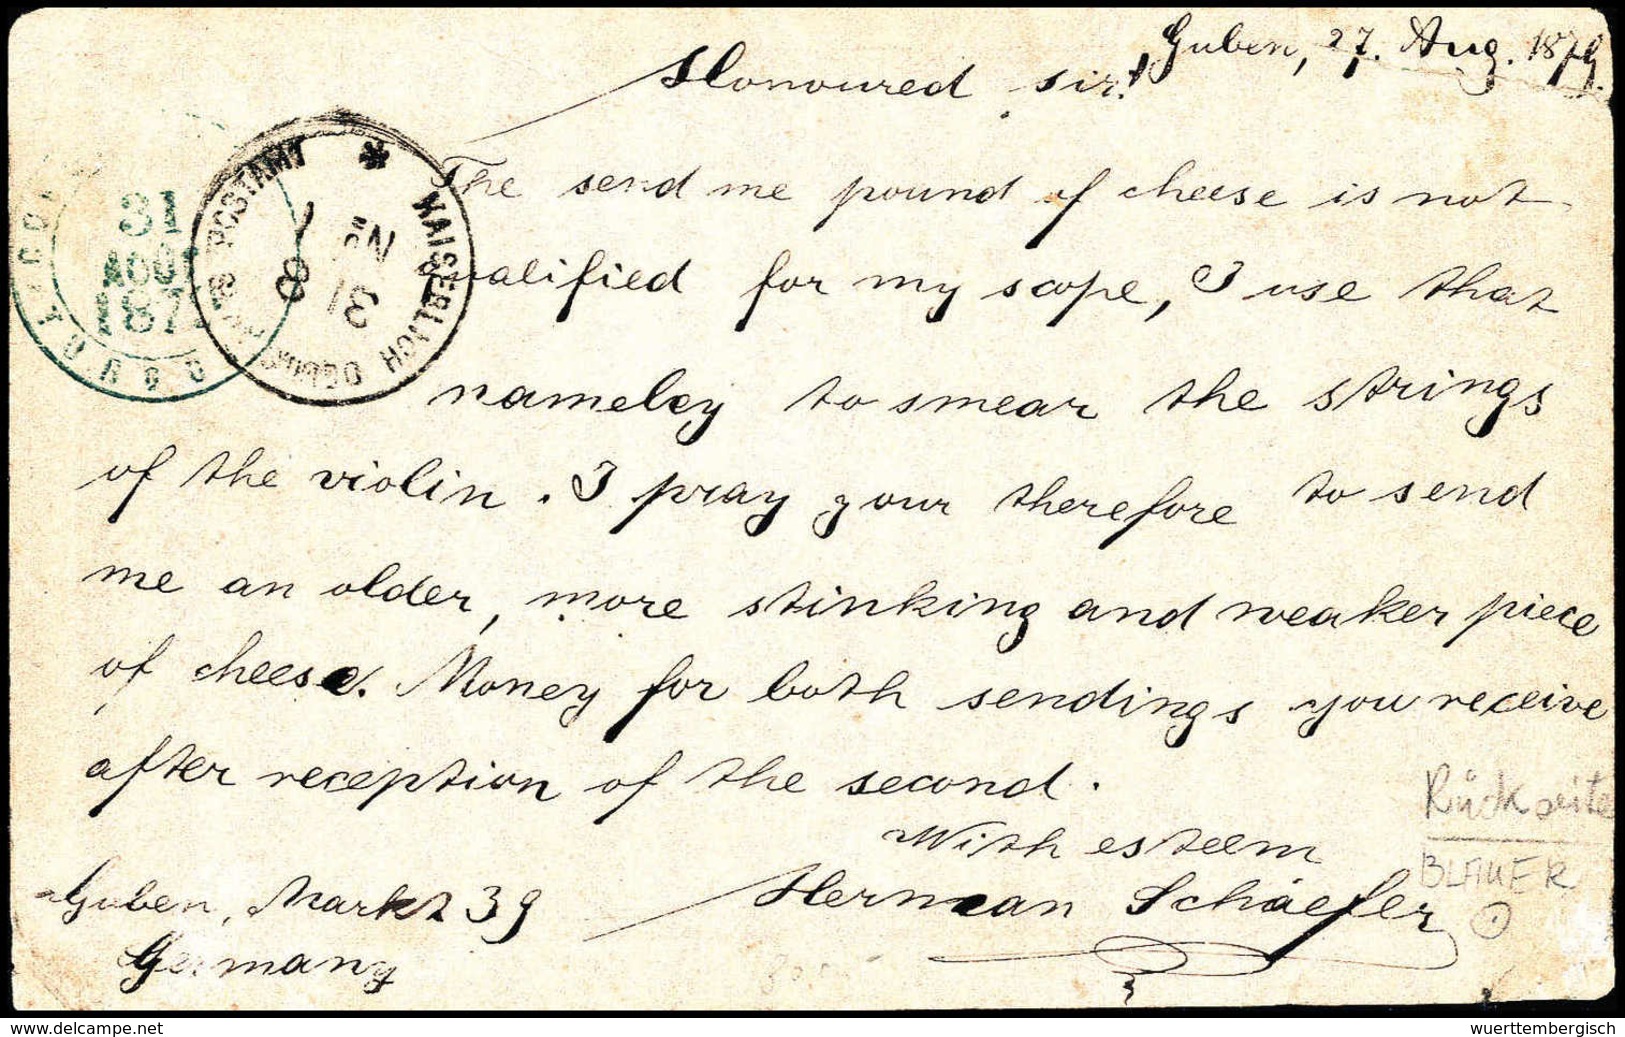 Guben, 27. Aug. 1879.
Honoured sir!
The send me pound of cheese is not
qualified for my scope, I use that
nameley to smear the strings
of the violin. I pray your therefore to send
me an older, more stinking and weaker piece
of cheese. Money for both sendings you receive
after reception of the second.
With esteem
Herman Schaefer
Guben, Markt 39
Germany
31
187
KAISERLICH
POSTAMT
No 1
31
8
Rückseite
BLAUER
1
www.delcampe.net
wuerttembergisch